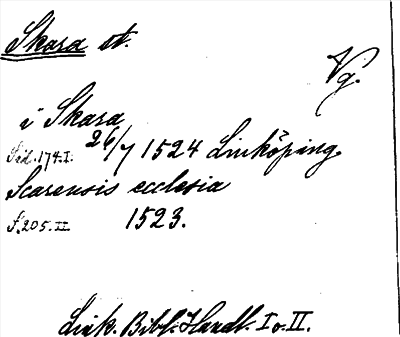 Skara st.
Vg.
i Skara
Sid. 174.I. 26/7 1524 Linköping
Scarensis ecclesia
S. 205. II 1523.
Link. Bibl. Handl. I o. II.